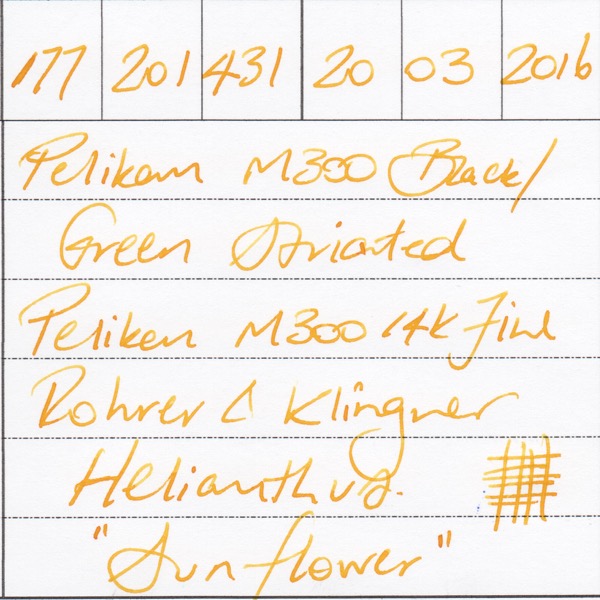 177 201 431 20 03 2016
Pelikan M300 Black/
Green Striated
Pelikan M300 14K Fine
Rohrer & Klingner
Helianthus.
"Sunflower"